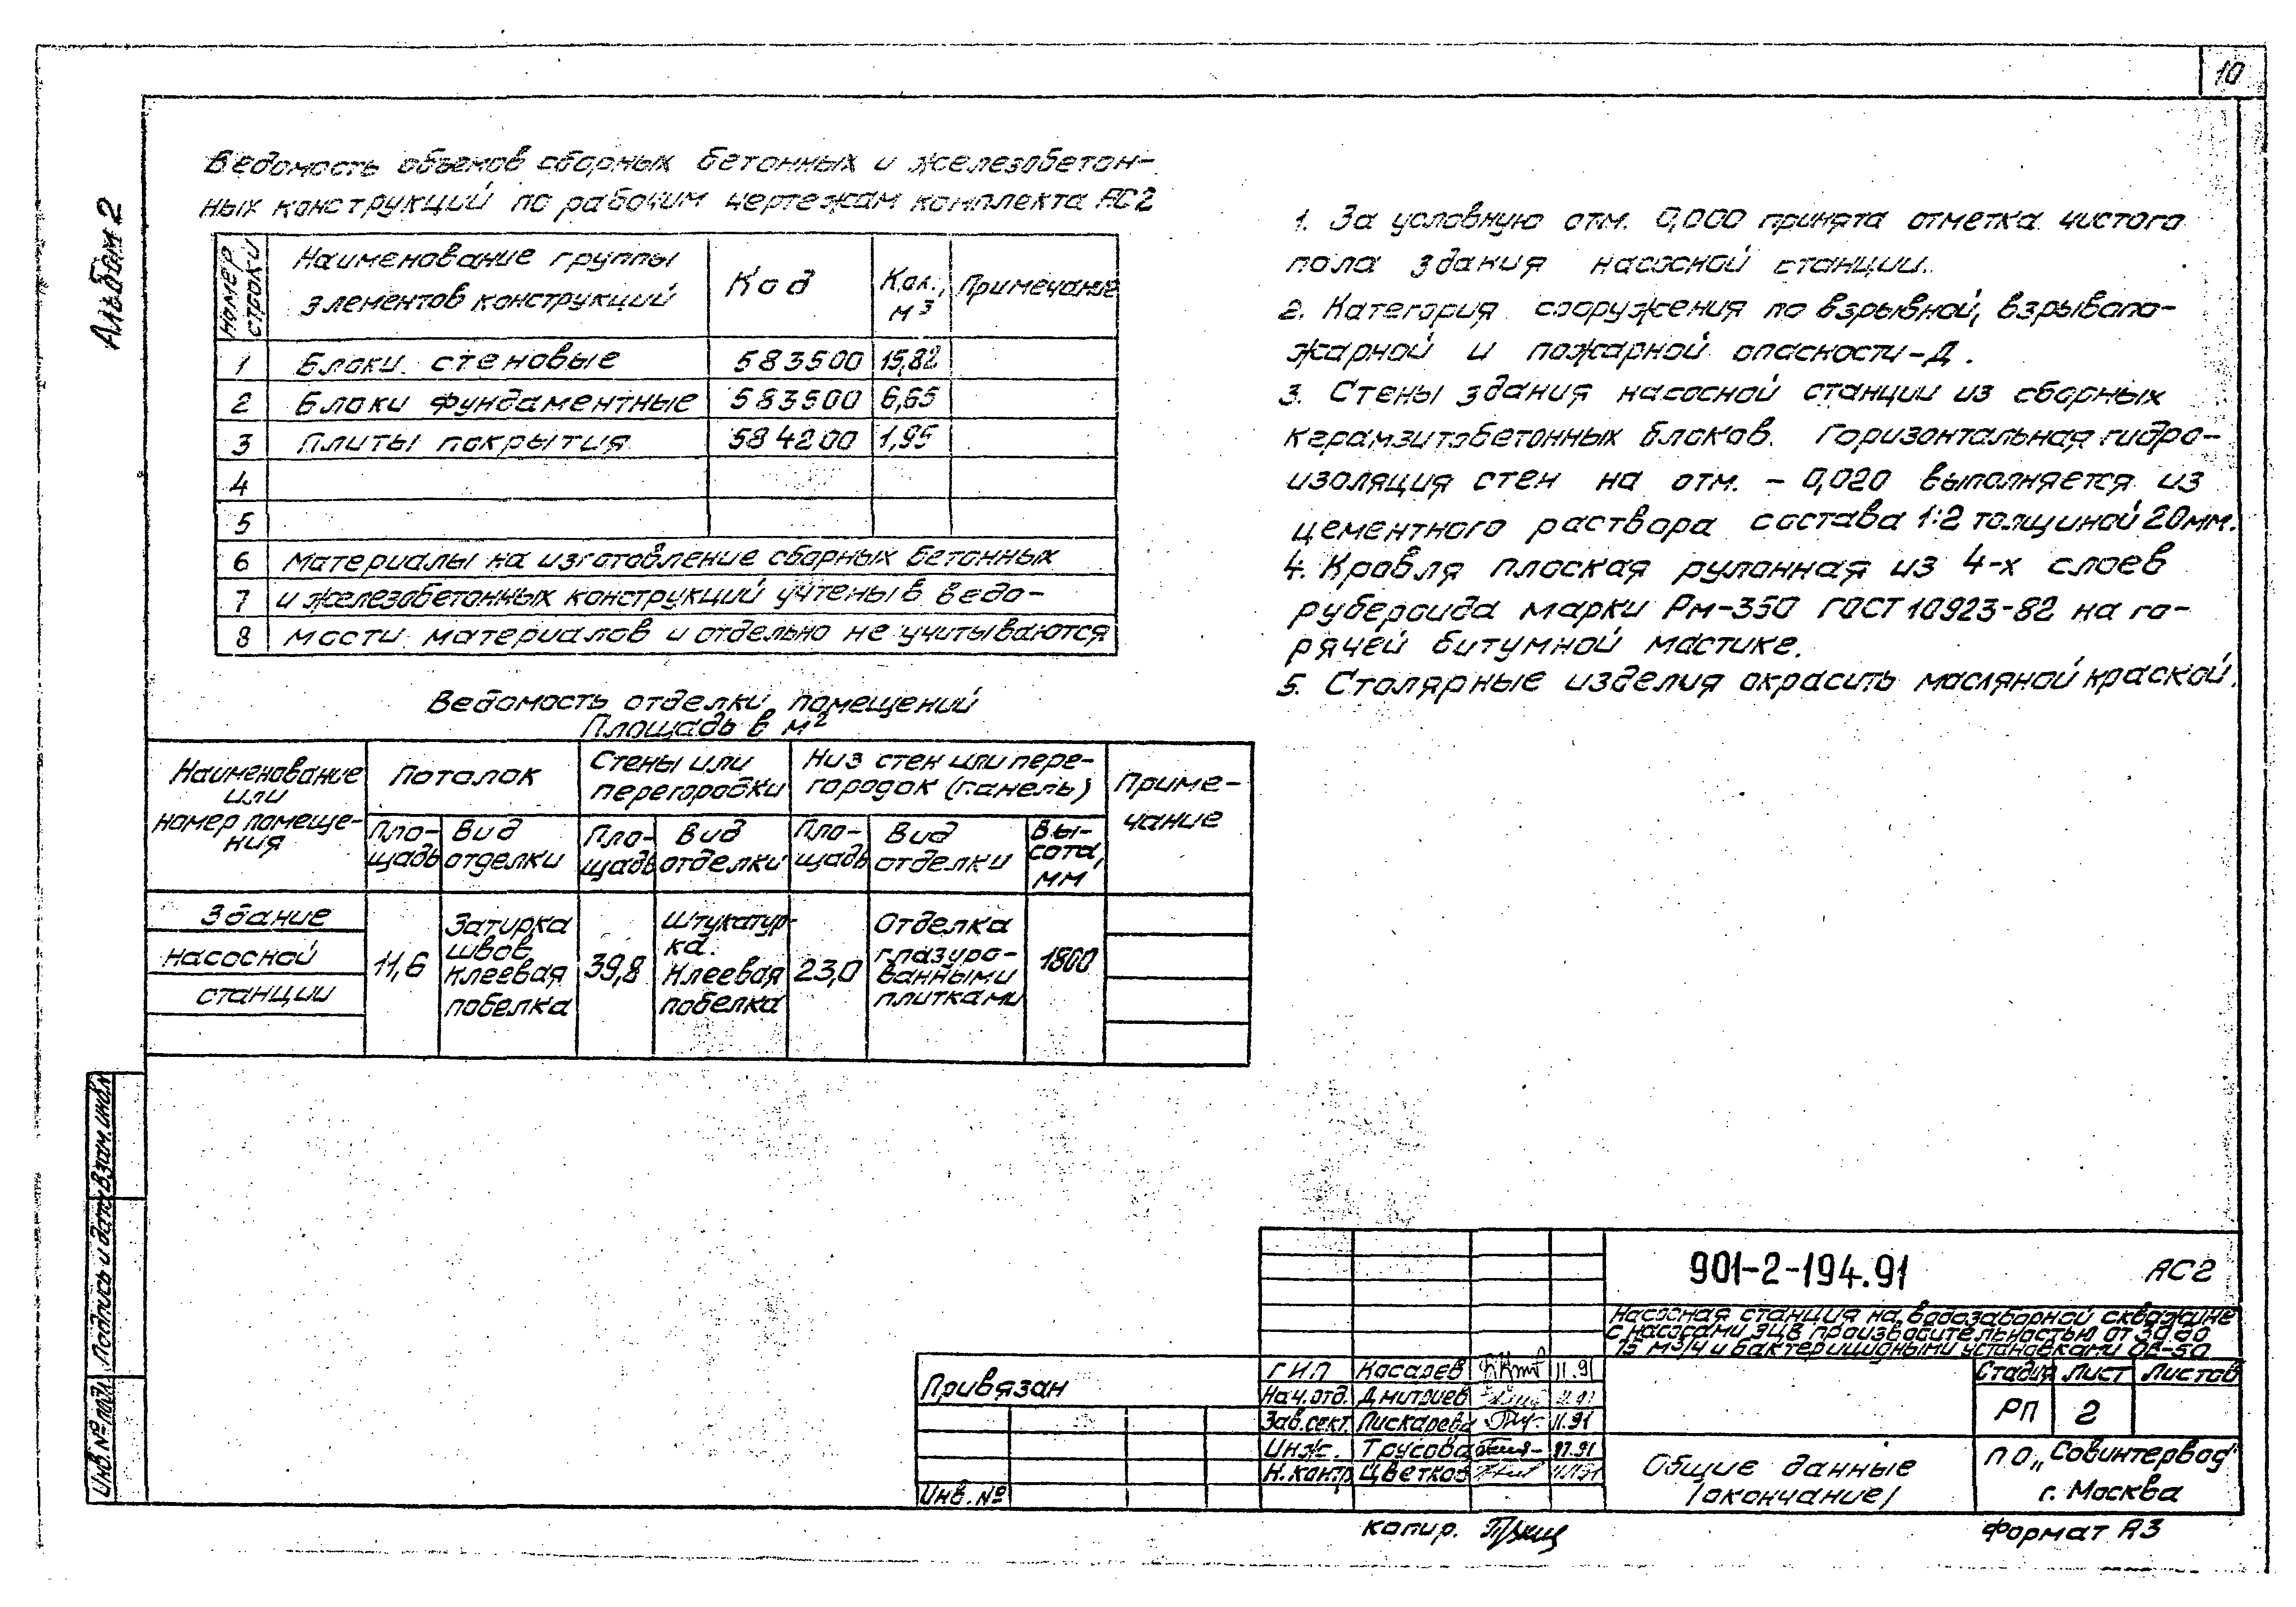 10
Альбом 2
Ведомость объемов сборных бетонных и железобетон-
ных конструкций по рабочим чертежам комплекта АС2
Номер строки
Наименование группы элементов конструкций
Код
Кол., м³
Примечание
1 Блоки стеновые 583500 15,82
2 Блоки фундаментные 583500 6,65
3 Плиты покрытия 584200 1,95
4
5
6 Материалы на изготовление сборных бетонных
7 и железобетонных конструкций учтены в ведо-
8 мости материалов и отдельно не учитываются
Ведомость отделки помещений
Площадь в м²
Наименование или номер помеще-ния
Потолок
Стены или перегородки
Низ стен или пере-городок (панель)
Приме-чание
Пло-щадь
Вид отделки
Пло-щадь
Вид отделки
Пло-щадь
Вид отделки
Вы-сота, мм
Здание
насосной
станции
11,6
Затирка
швов
Клеевая
побелка
39,8
Штукатур-
ка.
Клеевая
побелка
23,0
Отделка
глазуро-
ванными
плитками
1800
1. За условную отм. 0,000 принята отметка чистого
пола здания насосной станции.
2. Категория сооружения по взрывной, взрывопо-
жарной и пожарной опасности-Д.
3. Стены здания насосной станции из сборных
керамзитобетонных блоков. Горизонтальная гидро-
изоляция стен на отм. -0,020 выполняется из
цементного раствора состава 1:2 толщиной 20мм.
4. Кровля плоская рулонная из 4-х слоев
рубероида марки Рм-350 ГОСТ 10923-82 на го-
рячей битумной мастике.
5. Столярные изделия окрасить масляной краской.
Взам.инв.№
Подпись и дата
Инв.№ подл.
901-2-194.91
АС2
Насосная станция на водозаборной скважине
с насосами ЭЦВ производительностью от 30 до
75 м³/ч и бактерицидными установками ОВ-50
Привязан
Инв. №
ГИП Косарев 11.91
Нач.отд. Дмитриев 11.91
Зав.сект. Пискарева 11.91
Инж. Трусова 11.91
Н.контр. Цветков 11.91
Стадия Лист Листов
РП 2
Общие данные
/окончание/
П.О. „Совинтервод"
г. Москва
копир.
Формат А3